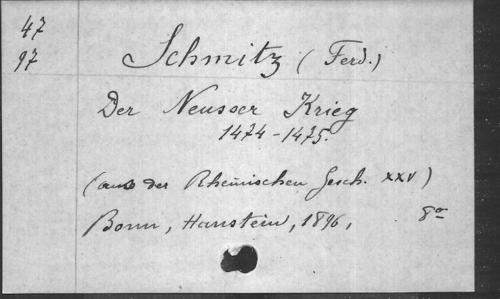 47
97
Schmitz (Ferd.)
Der Neusser Krieg
1474-1475.
(aus der Rheinischen Gesch. XXV)
Bonn, Hanstein, 1896, 8º